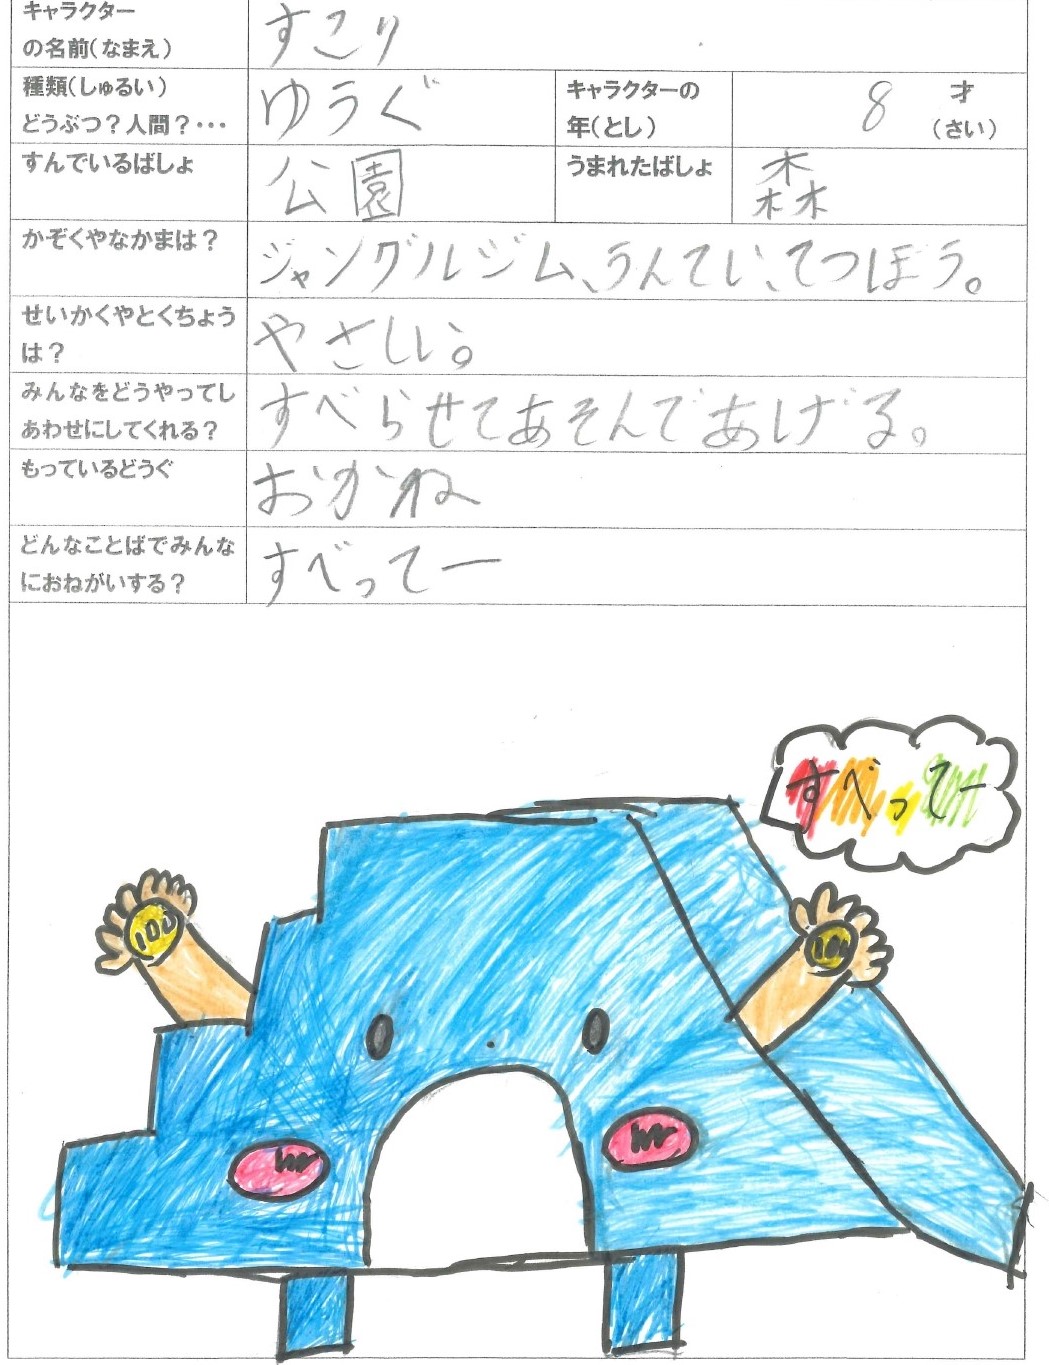 キャラクター
の名前(なまえ)
すこり
種類(しゅるい)
どうぶつ？人間？・・・
ゆうぐ
キャラクターの
年(とし)
8 才
(さい)
すんでいるばしょ
公園
うまれたばしょ
森
かぞくやなかまは？
ジャングルジム、うんてい、てつぼう。
せいかくやとくちょう
は？
やさしい。
みんなをどうやってし
あわせにしてくれる？
すべらせてあそんであげる。
もっているどうぐ
おかね
どんなことばでみんな
におねがいする？
すべってー
すべってー
100
100